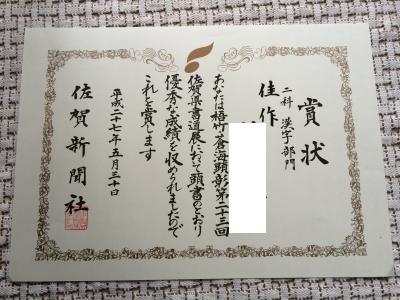 賞状
二科 漢字部門
佳作
あなたは梧竹・蒼海顕彰第二十三回
佐賀県書道展において頭書のとおり
優秀な成績を収められましたので
これを賞します
平成二十七年五月三十日
佐賀新聞社